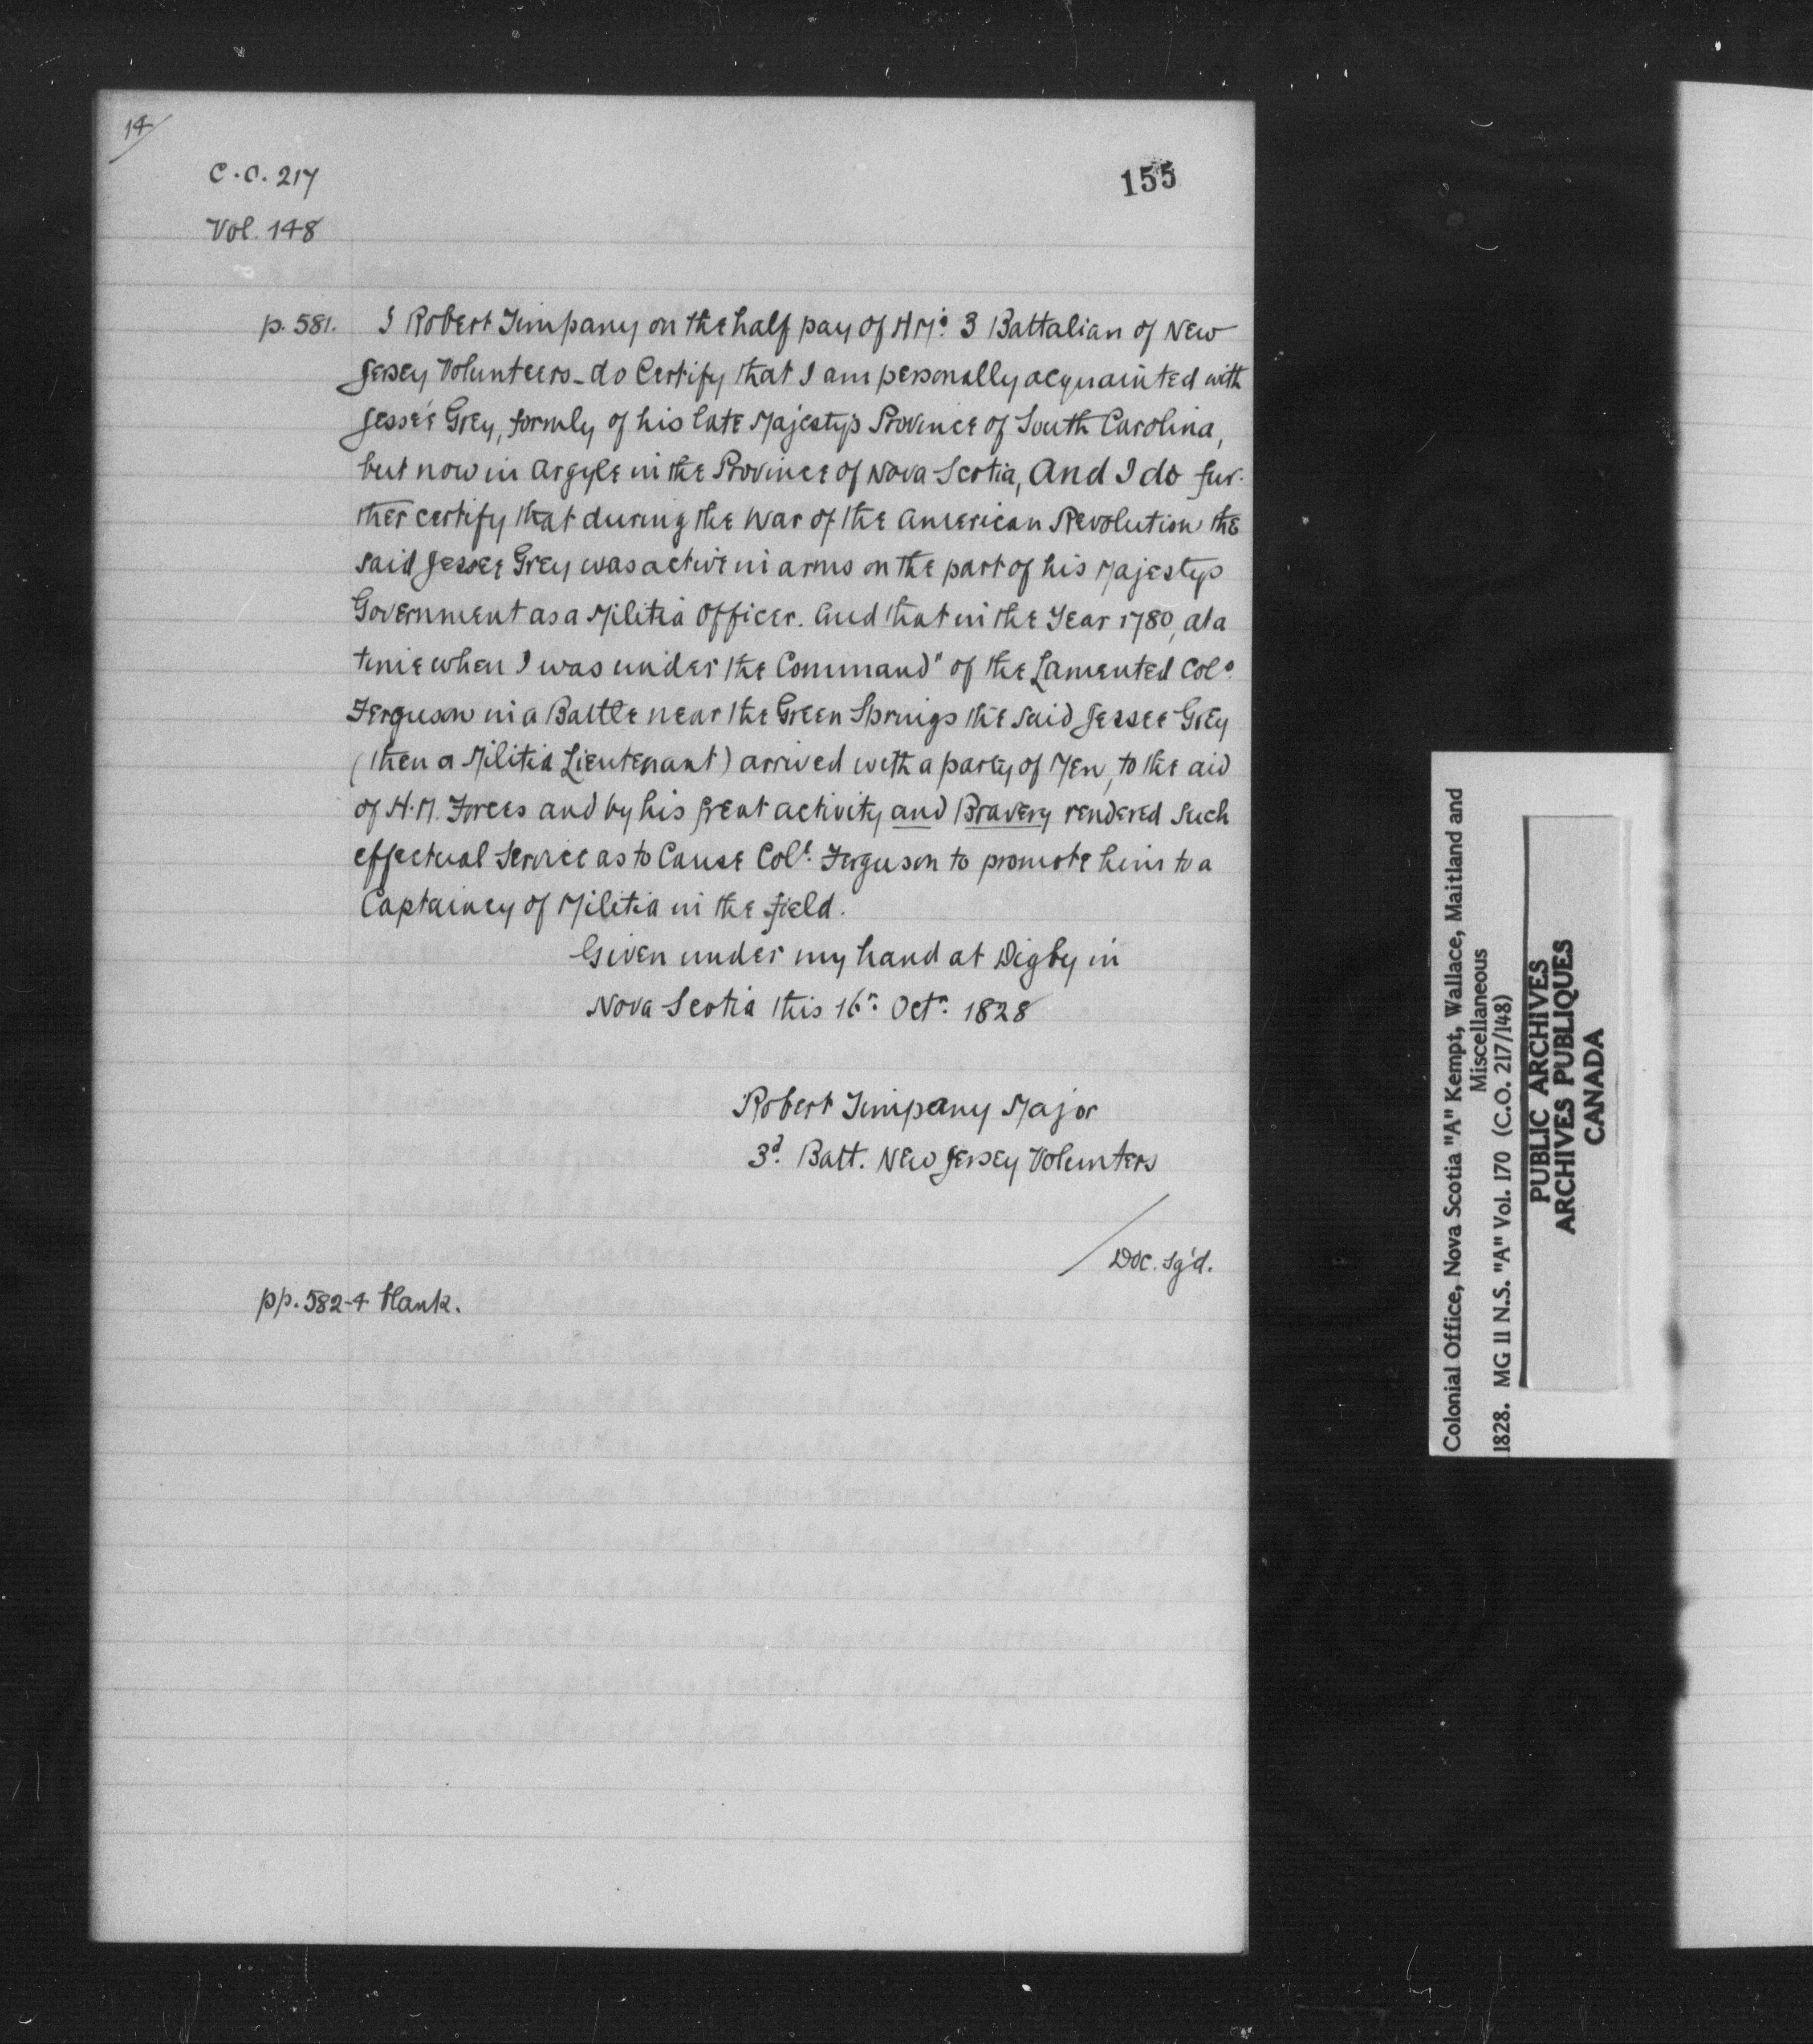 14
C.O. 217
155
Vol. 148
p. 581. I Robert Timpany on the half pay of HM's 3 Battalian of New
Jersey Volunteers - do Certify that I am personally acquainted with
Jesseé Grey, formly of his late Majesty's Province of South Carolina,
but now in Argyle in the Province of Nova Scotia, And I do fur-
ther certify that during the War of the American Revolution the
said Jessee Grey was active in arms on the part of his Majestys
Government as a Militia Officer. And that in the Year 1780, at a
time when I was under the Command" of the Lamented Colo.
Ferguson in a Battle near the Green Springs the said Jessee Grey
(then a Militia Lieutenant) arrived with a party of Men, to the aid
of H.M. Forces and by his great activity and Bravery rendered such
effectual Service as to Cause Colo. Ferguson to promote him to a
Captaincy of Militia in the field.
Given under my hand at Digby in
Nova Scotia this 16n. Octr. 1828
Robert Timpany Major
3d. Batt. New Jersey Volunters
Doc. sg'd.
pp. 582-4 blank.
Colonial Office, Nova Scotia "A" Kempt, Wallace, Maitland and
Miscellaneous
1828. MG 11 N.S. "A" Vol. 170 (C.O. 217/148)
PUBLIC ARCHIVES
ARCHIVES PUBLIQUES
CANADA